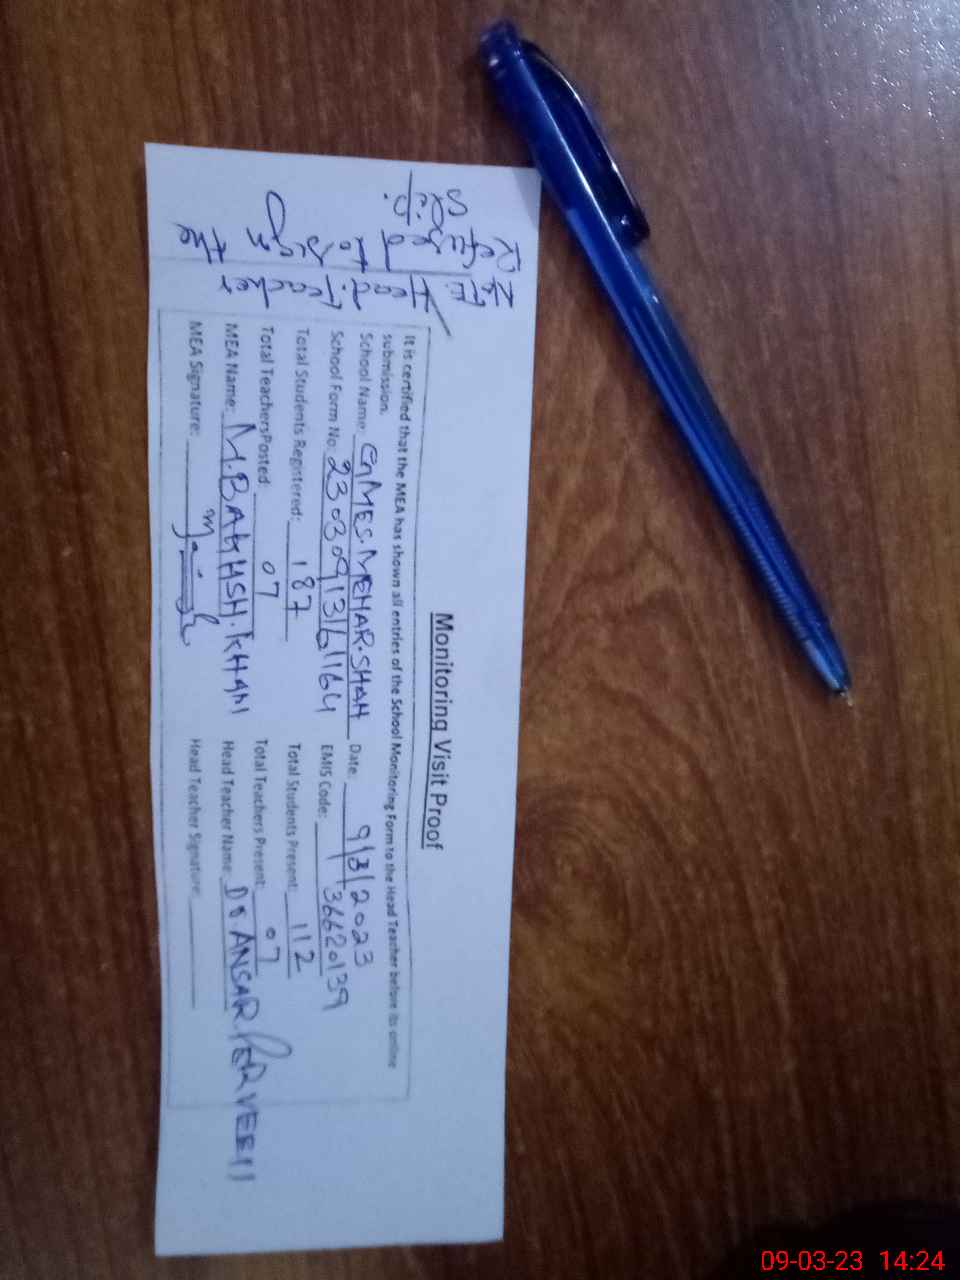 Monitoring Visit Proof
It is certified that the MEA has shown all entries of the School Monitoring Form to the Head Teacher before its online
submission.
School Name: GMES.MEHAR.SHAH Date: 9/3/2023
School Form No: 23030913161164 EMIS Code: 36620139
Total Students Registered: 187 Total Students Present: 112
Total TeachersPosted: 07 Total Teachers Present: 07
MEA Name: M.BAKHSH.KHAN Head Teacher Name: DR.ANSAR.PERVEEN
MEA Signature: Head Teacher Signature:
09-03-23 14:24